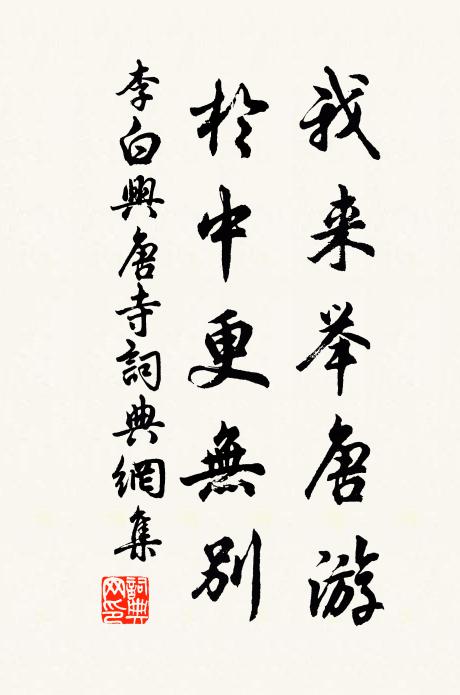 我来举唐游
於中更無别
李白興唐寺詞典網集
詞典网印